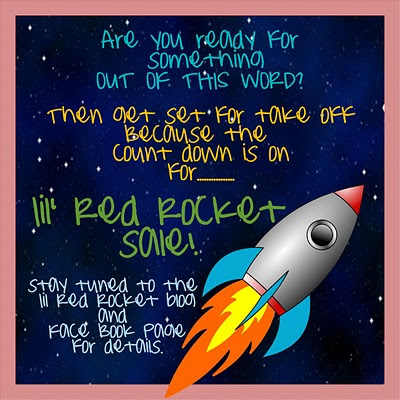 Are you ready for
something
OUT OF THIS WORD?
Then get set for take off
Because the
count down is on
for..............
lil' Red Rocket
Sale!
Stay tuned to the
lil Red Rocket blog
and
Face Book Page
for details.